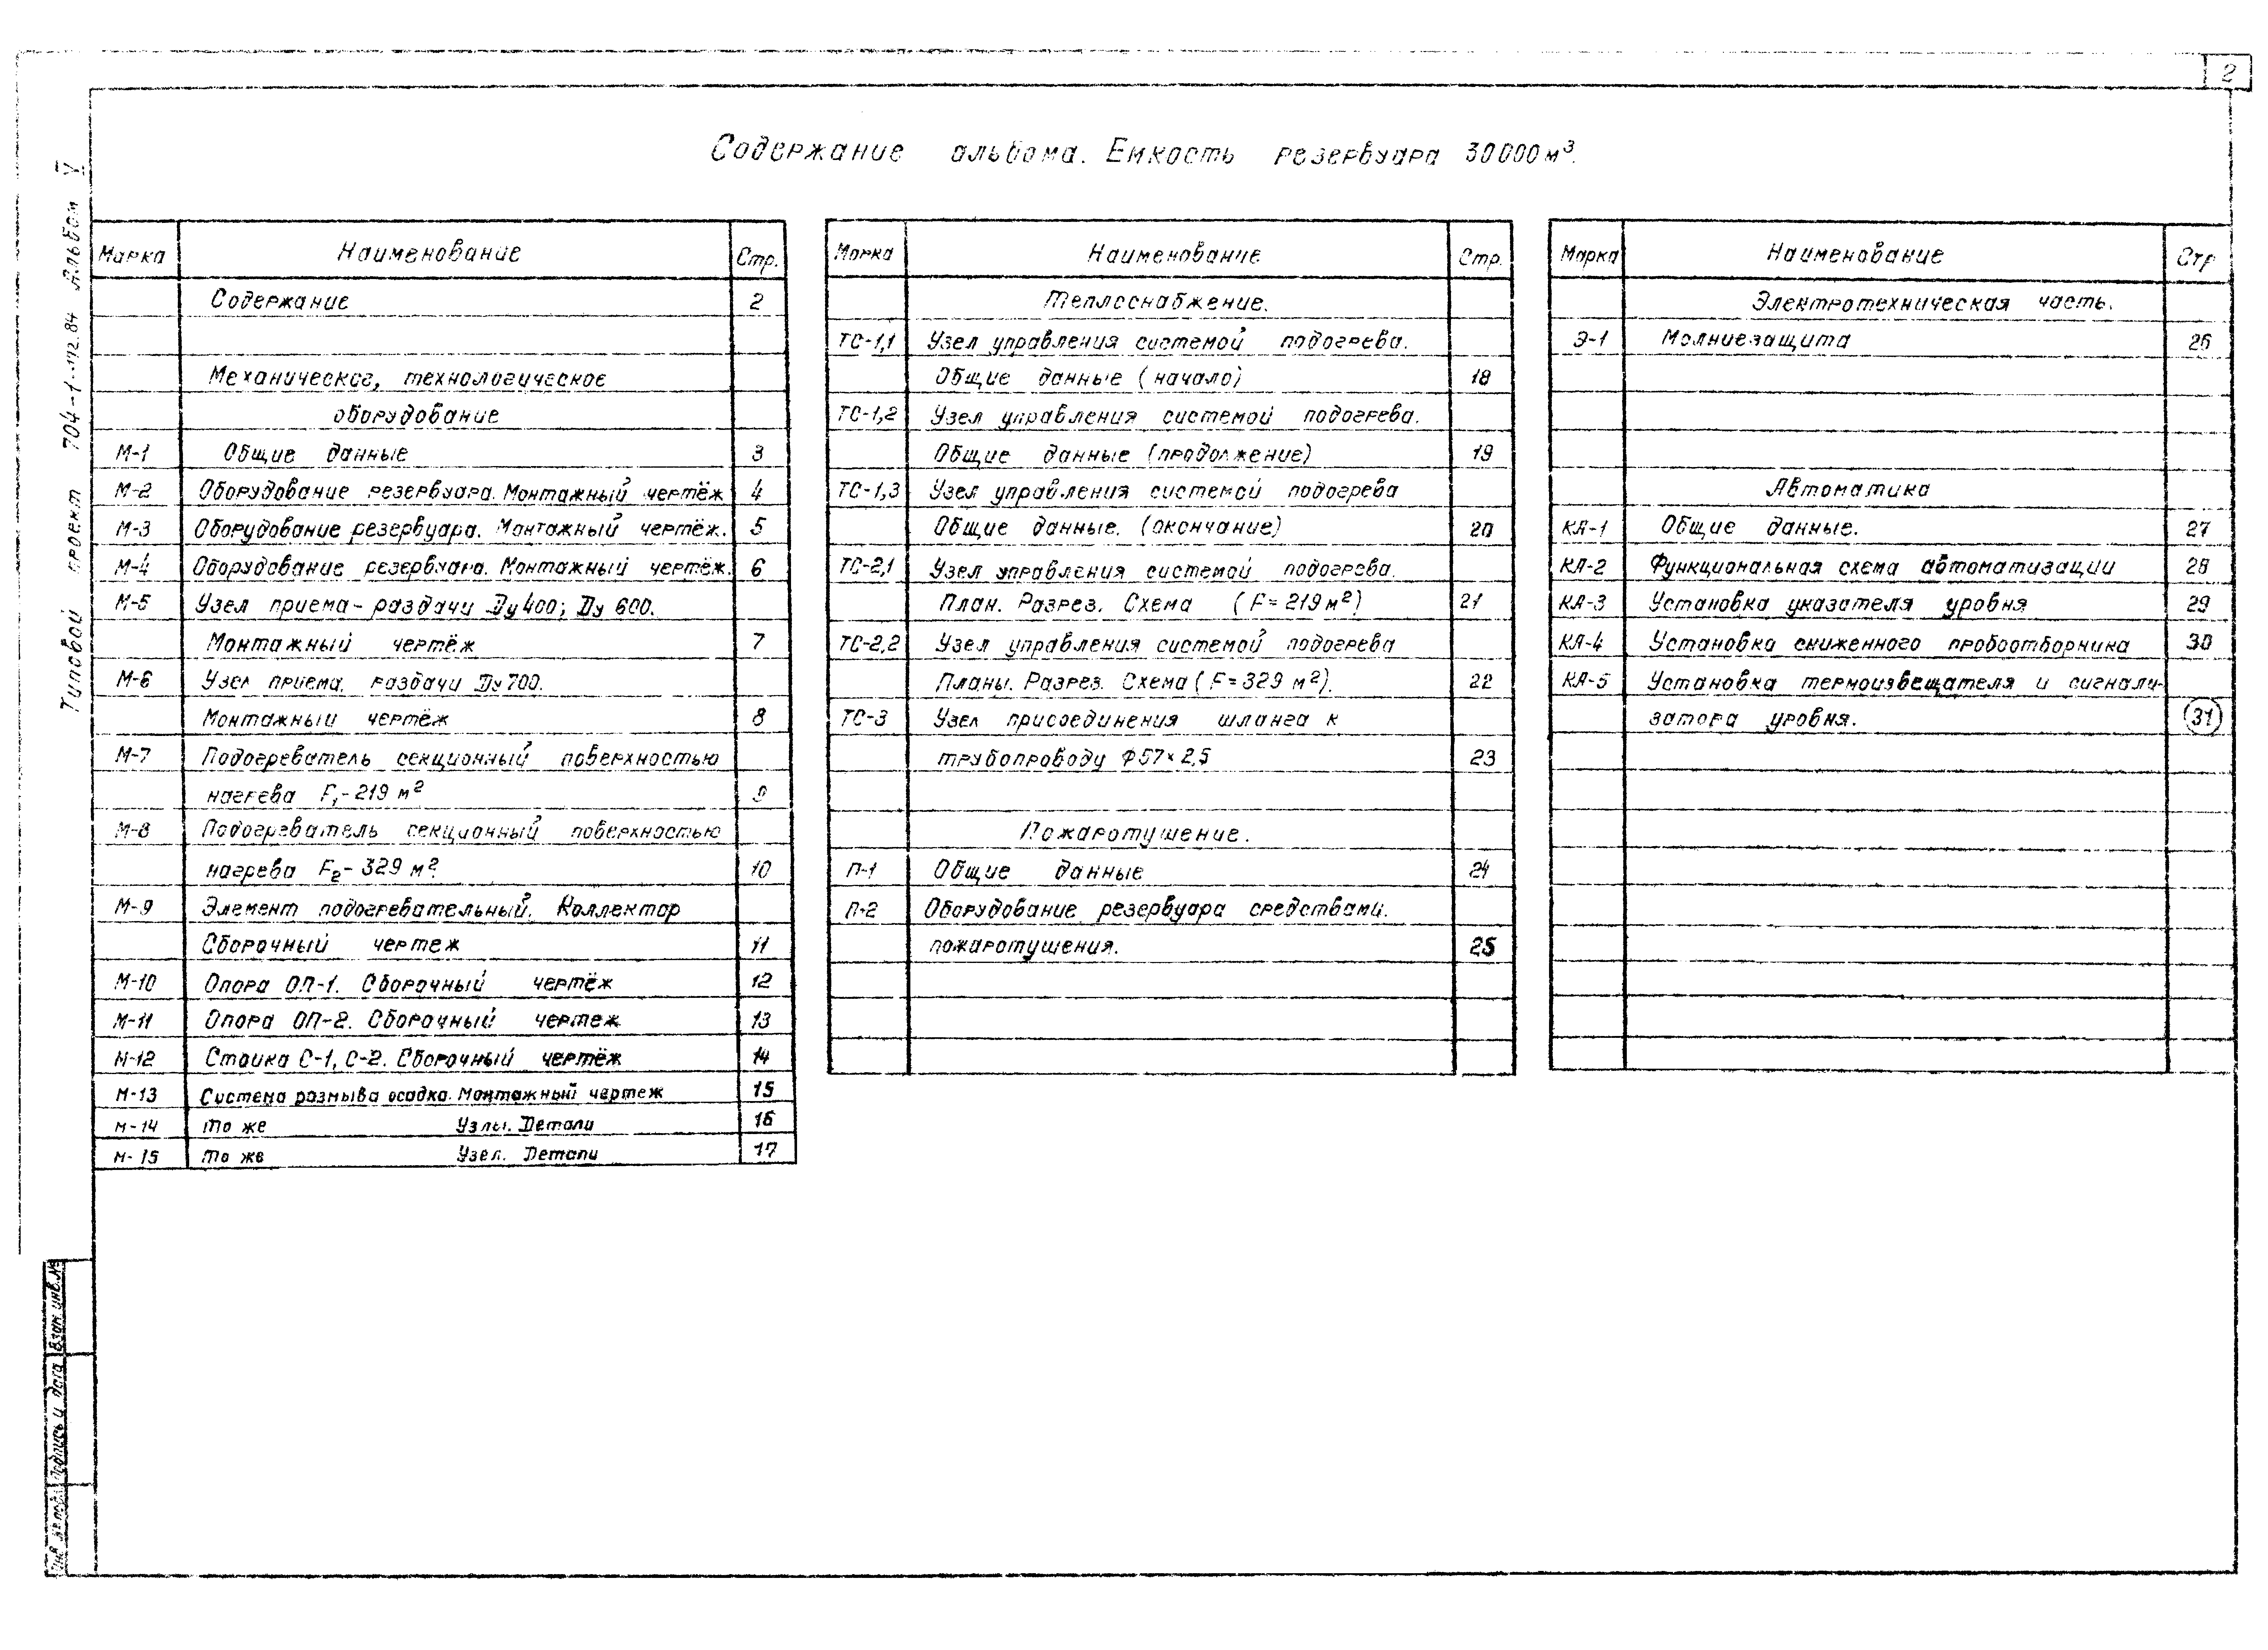 2
Содержание альбома. Емкость резервуара 30000 м³.
Типовой проект 704-1-172.84 Альбом V
Марка Наименование Стр.
Содержание 2
Механическое, технологическое
оборудование
М-1 Общие данные 3
М-2 Оборудование резервуара. Монтажный чертёж 4
М-3 Оборудование резервуара. Монтажный чертёж. 5
М-4 Оборудование резервуара. Монтажный чертёж. 6
М-5 Узел приема-раздачи Ду 400; Ду 600.
Монтажный чертёж 7
М-6 Узел приема, раздачи Ду 700.
Монтажный чертёж 8
М-7 Подогреватель секционный поверхностью
нагрева F₁-219 м² 9
М-8 Подогреватель секционный поверхностью
нагрева F₂-329 м². 10
М-9 Элемент подогревательный. Коллектор
Сборочный чертеж 11
М-10 Опора ОП-1. Сборочный чертёж 12
М-11 Опора ОП-2. Сборочный чертеж 13
М-12 Стойка С-1, С-2. Сборочный чертёж 14
М-13 Система размыва осадка. Монтажный чертеж 15
М-14 То же Узлы. Детали 16
М-15 То же Узел. Детали 17
Марка Наименование Стр.
Теплоснабжение.
ТС-1,1 Узел управления системой подогрева.
Общие данные (начало) 18
ТС-1,2 Узел управления системой подогрева.
Общие данные (продолжение) 19
ТС-1,3 Узел управления системой подогрева
Общие данные. (окончание) 20
ТС-2,1 Узел управления системой подогрева.
План. Разрез. Схема (F=219 м²) 21
ТС-2,2 Узел управления системой подогрева
Планы. Разрез. Схема (F=329 м²). 22
ТС-3 Узел присоединения шланга к
трубопроводу Ф57×2,5 23
Пожаротушение.
П-1 Общие данные 24
П-2 Оборудование резервуара средствами.
пожаротушения. 25
Марка Наименование Стр
Электротехническая часть.
Э-1 Молниезащита 26
Автоматика
КА-1 Общие данные. 27
КА-2 Функциональная схема автоматизации 28
КА-3 Установка указателя уровня 29
КА-4 Установка сниженного пробоотборника 30
КА-5 Установка термоизвещателя и сигнали-
затора уровня. 31
Взам. инв. №
Подпись и дата
Инв. № подл.